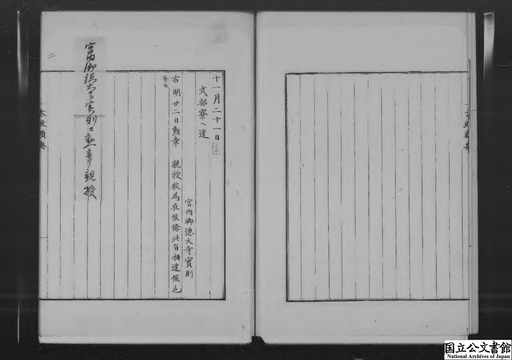 宮内卿徳大寺実則ヘ勲章親授
十一月二十一日
式部寮ヘ達
宮内卿徳大寺實則
右明廿二日勲章 親授被為在候條此旨相達候也
国立公文書館
National Archives of Japan